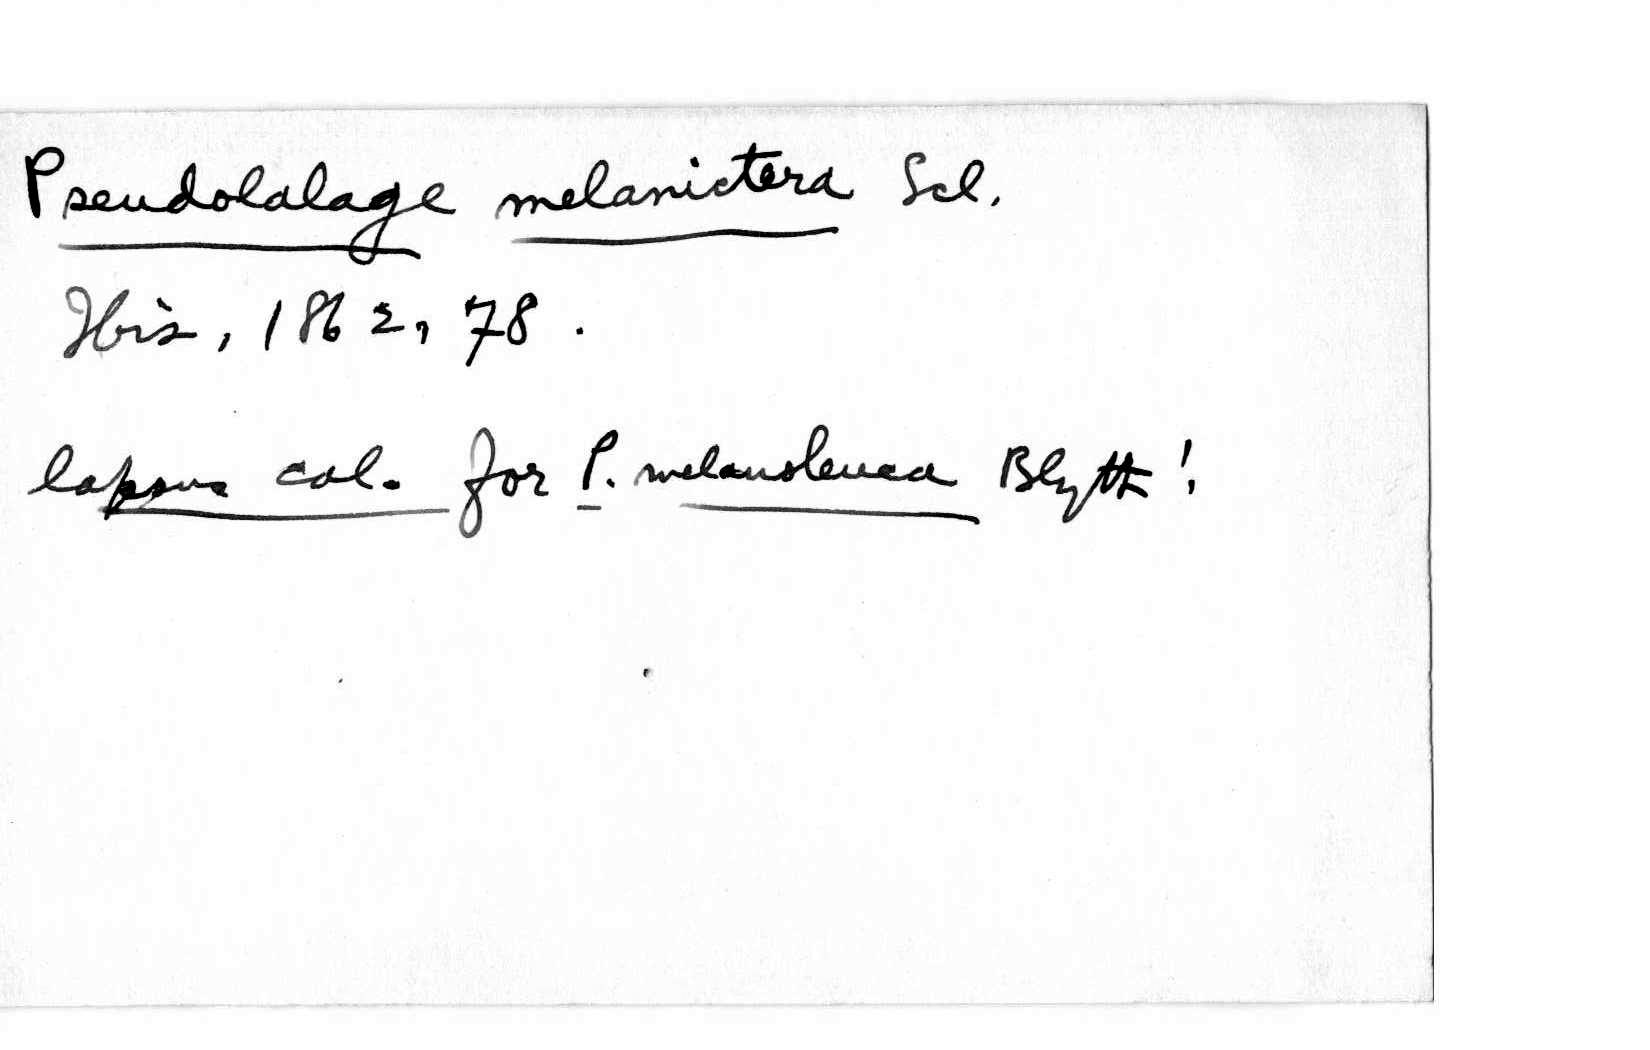 Pseudolalage melanictera Scl.
Ibis, 1862, 78.
lapsus cal. for P. melanoleuca Blyth!